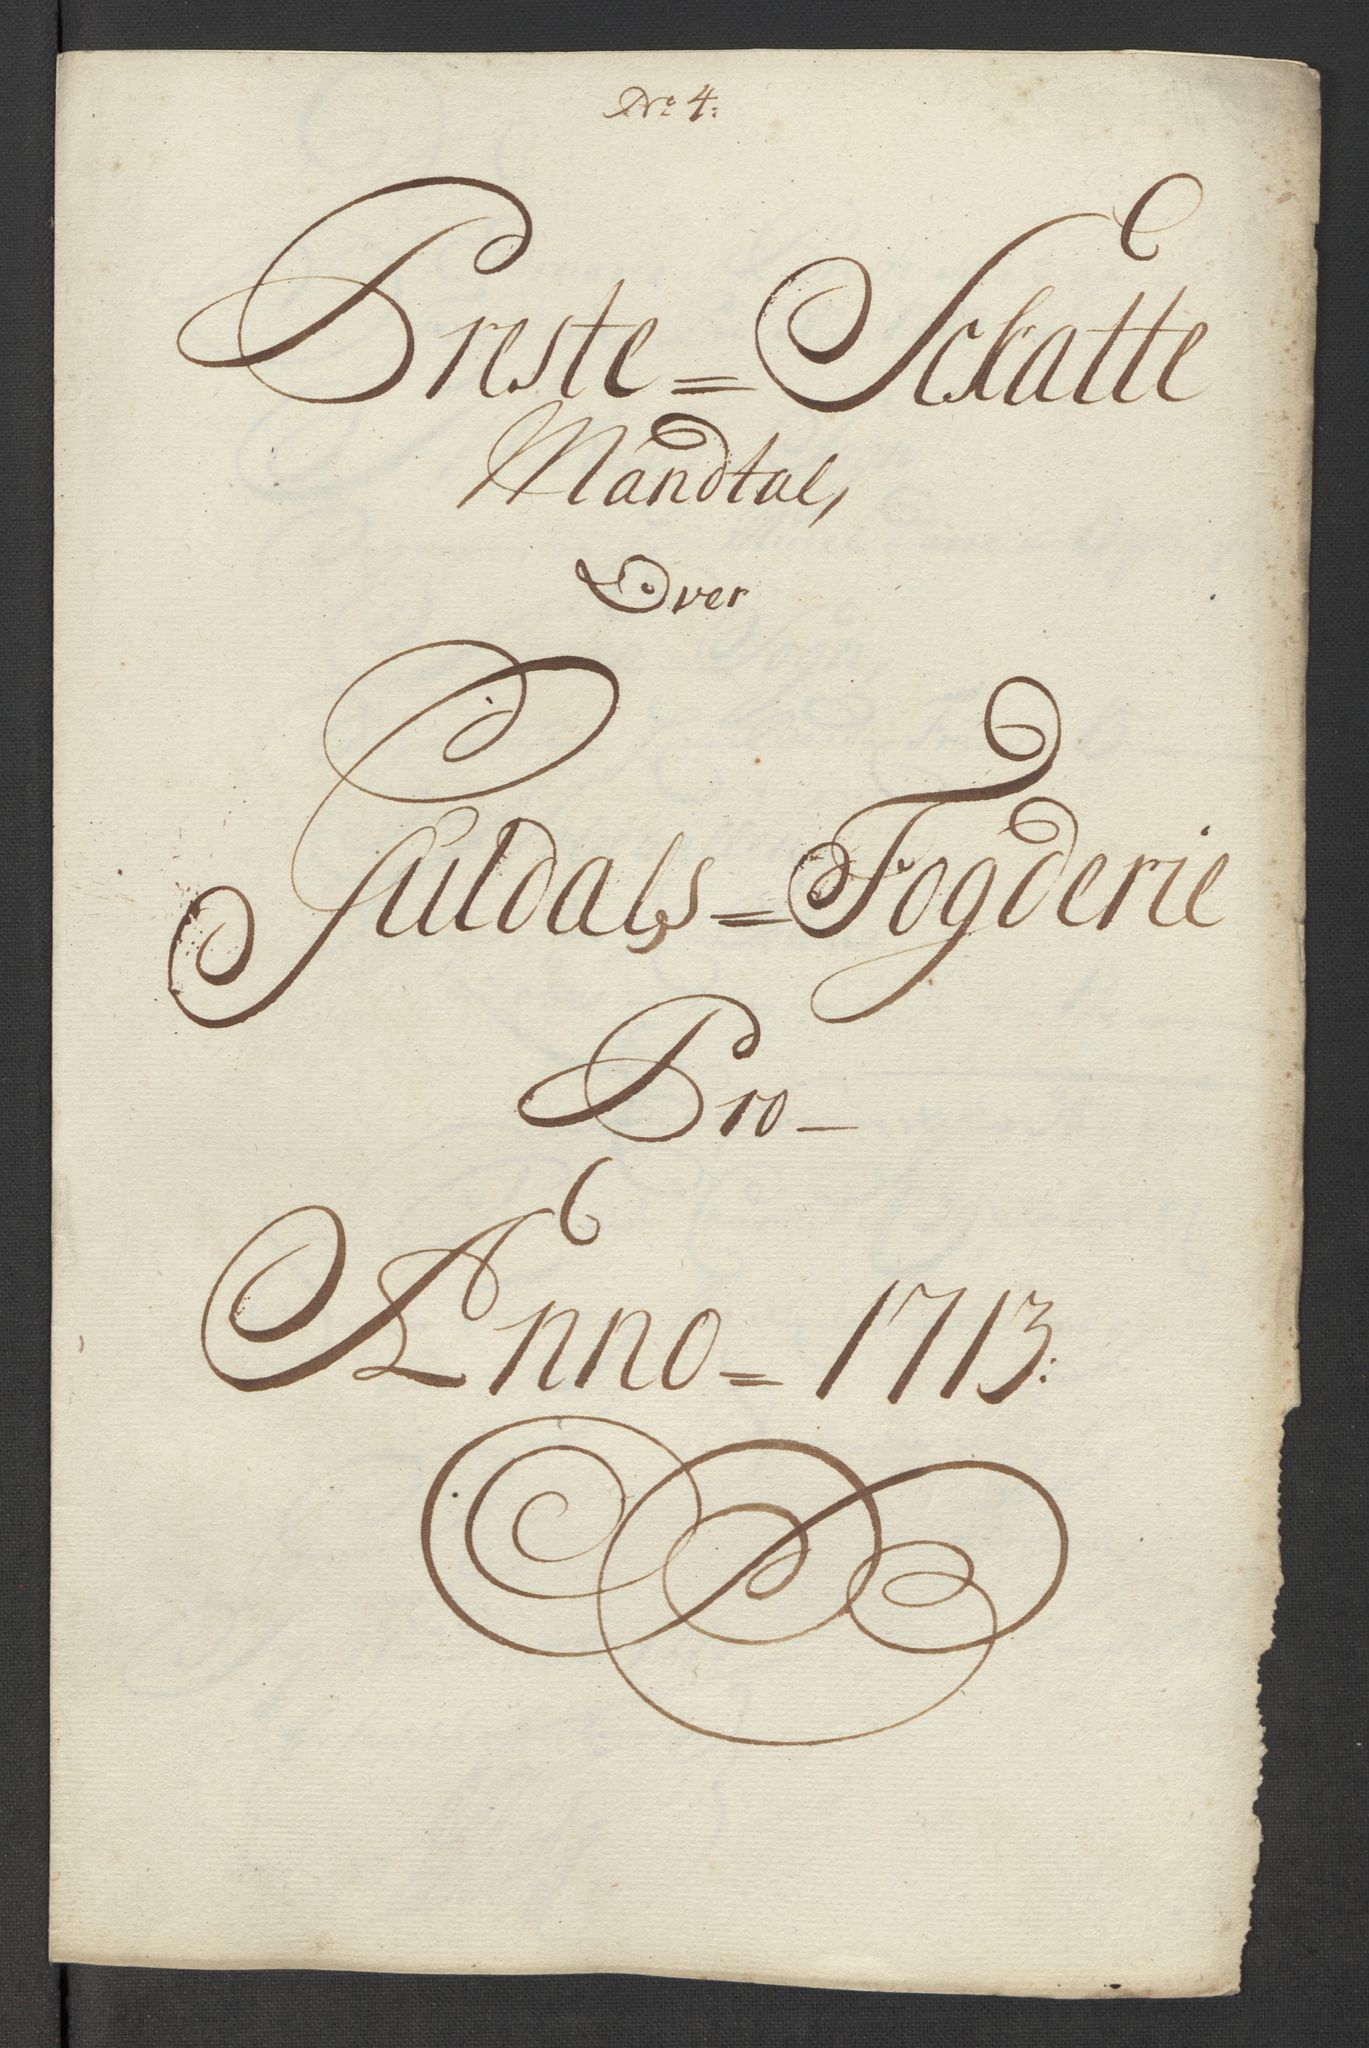 No 4:
Preste = Schatte
Mandtal,
Over
Guldals = Fogderie
Pro –
Anno = 1713: